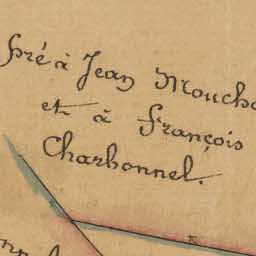 pré à Jean Mouch
et à François
Charbonnel.